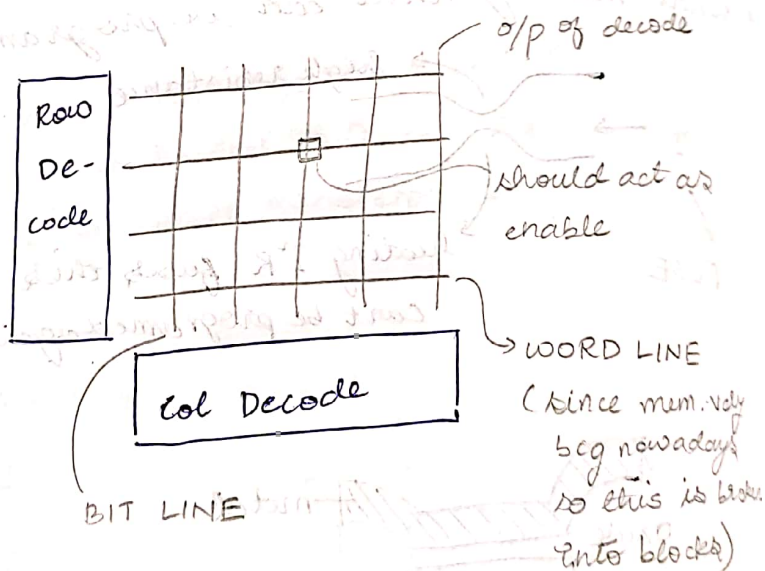 o/p of decode
Row
De-
code
should act as
enable
WORD LINE
(since mem. vdy
big nowadays
so this is broke
into blocks)
Col Decode
BIT LINE